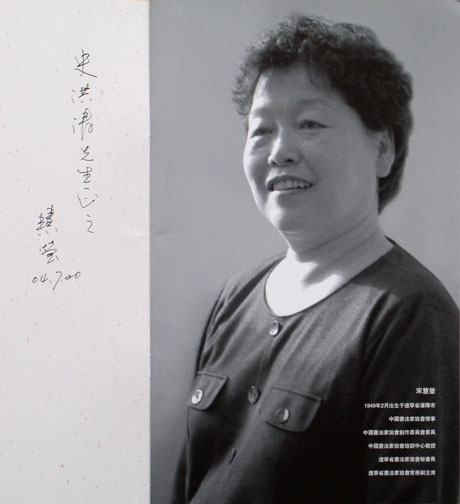 史洪清先生正之
慧莹
04.7.20
宋慧瑩
1949年2月出生于遼寧省瀋陽市
中國書法家協會理事
中國書法家協會創作委員會委員
中國書法家協會培訓中心教授
遼寧省書法家協會秘書長
遼寧省書法家協會常務副主席